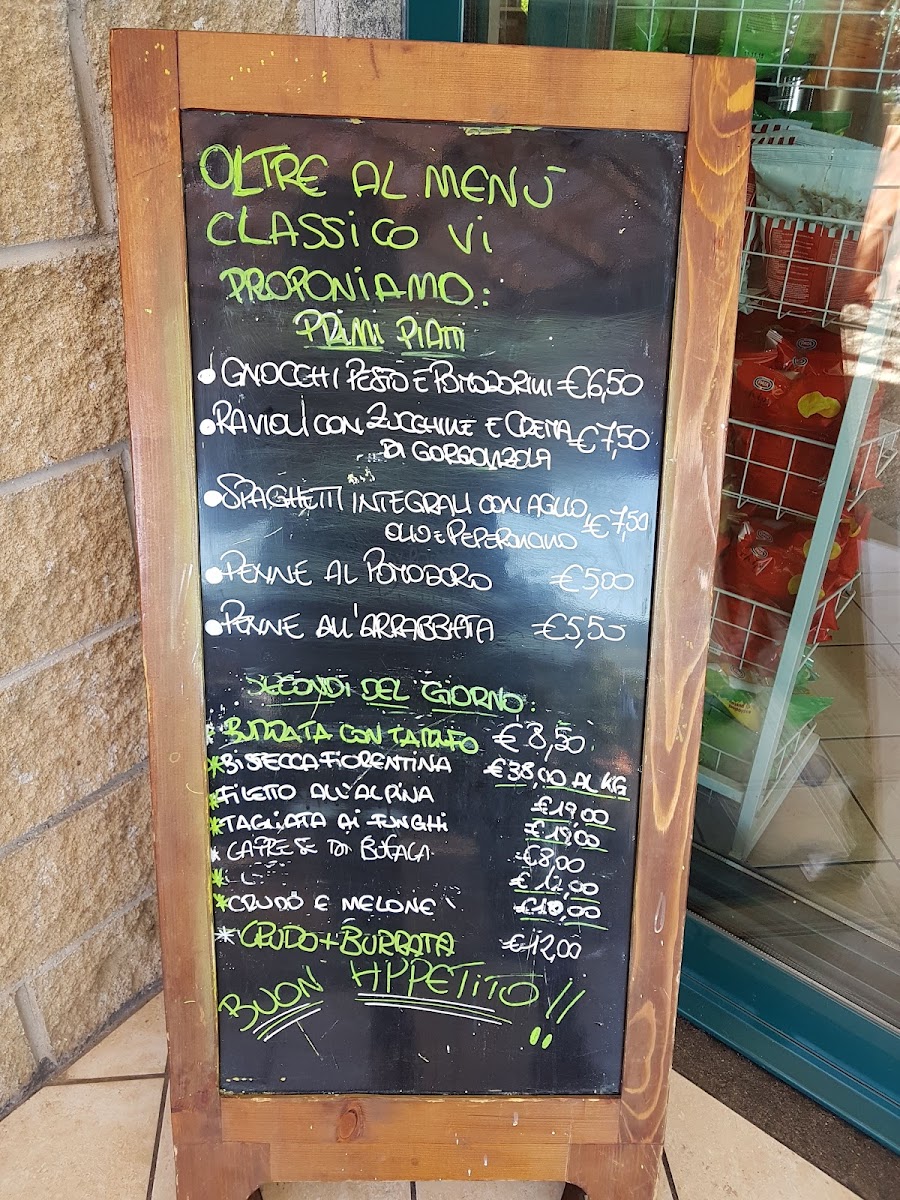 OLTRE AL MENÙ
CLASSICO VI
PROPONIAMO:
PRIMI PIATTI
• GNOCCHI PESTO E POMODORINI €6,50
• RAVIOLI CON ZUCCHINE E CREMA €7,50
DI GORGONZOLA
• SPAGHETTI INTEGRALI CON AGLIO, €7,50
OLIO E PEPERONCINO
• PENNE AL POMODORO €5,00
• PENNE ALL'ARRABBIATA €5,50
SECONDI DEL GIORNO:
* BURRATA CON TARTUFO €8,50
* BISTECCA FIORENTINA €38,00 AL KG
* FILETTO ALL'ALPINA €19,00
* TAGLIATA AI FUNGHI €19,00
* CAPRESE DI BUFALA €8,00
* €12,00
* CRUDO E MELONE €10,00
* CRUDO + BURRATA €12,00
BUON APPETITO!!